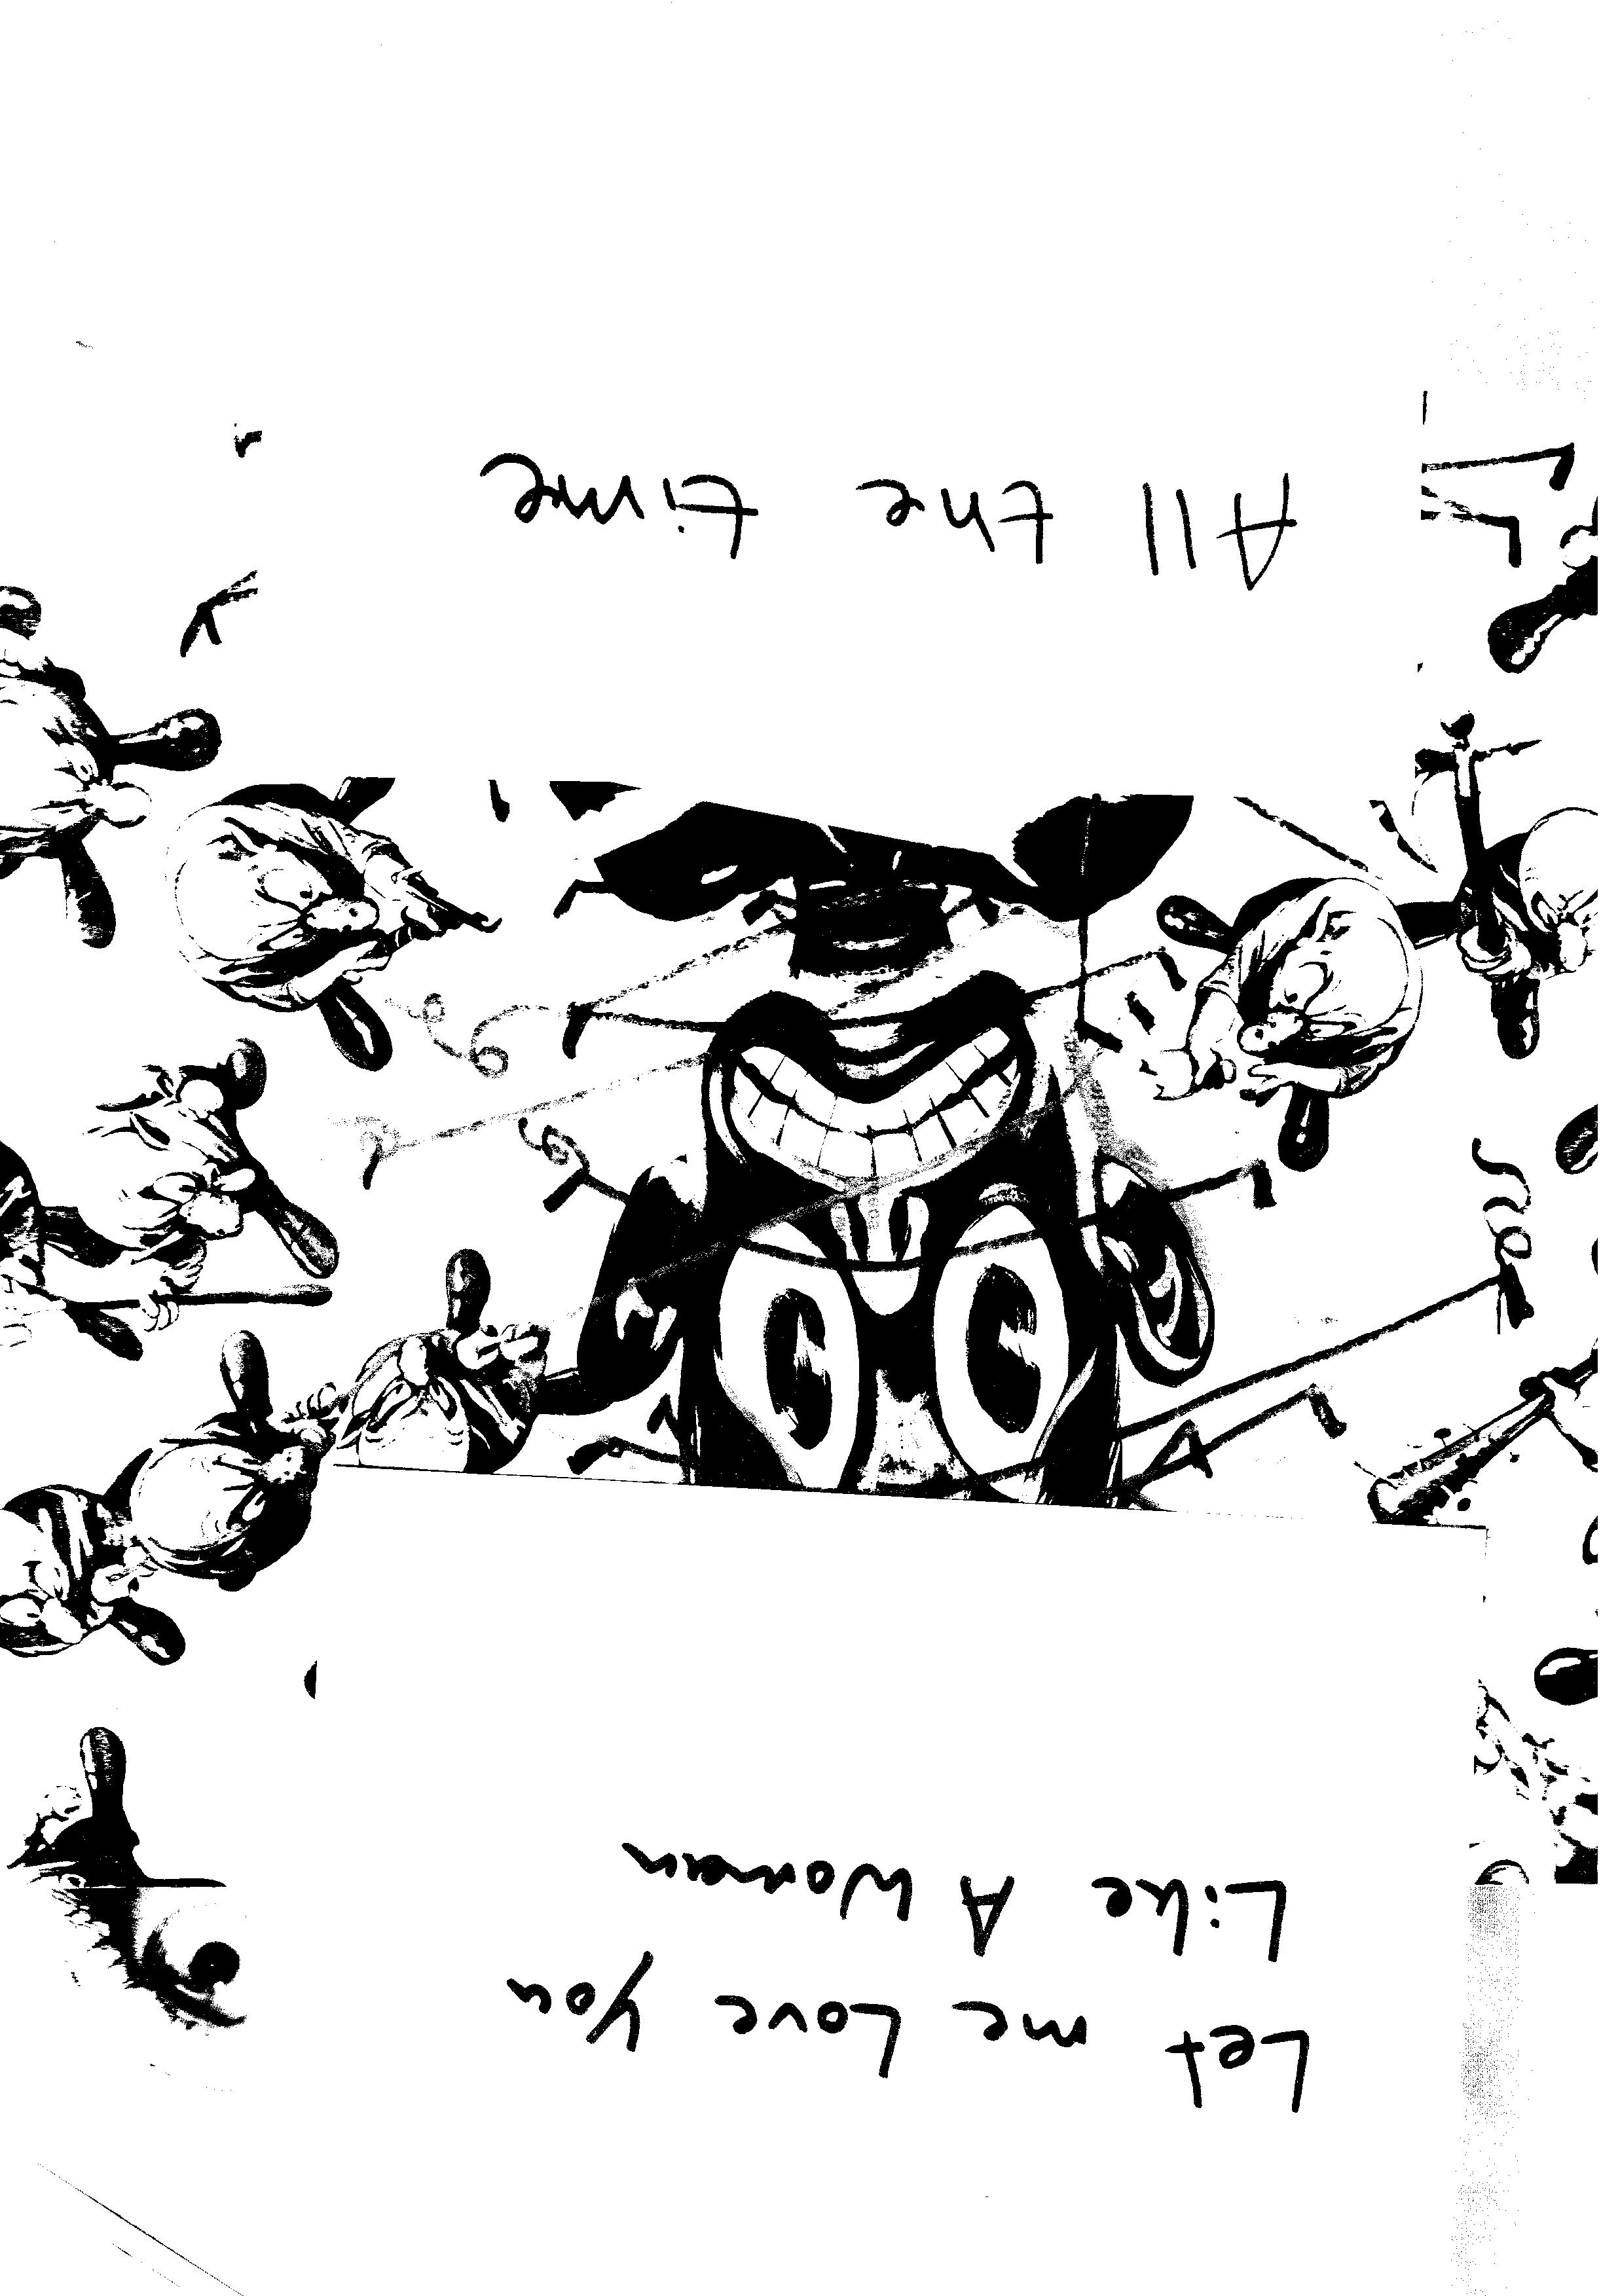 Let me Love You
Like A Woman
All the time